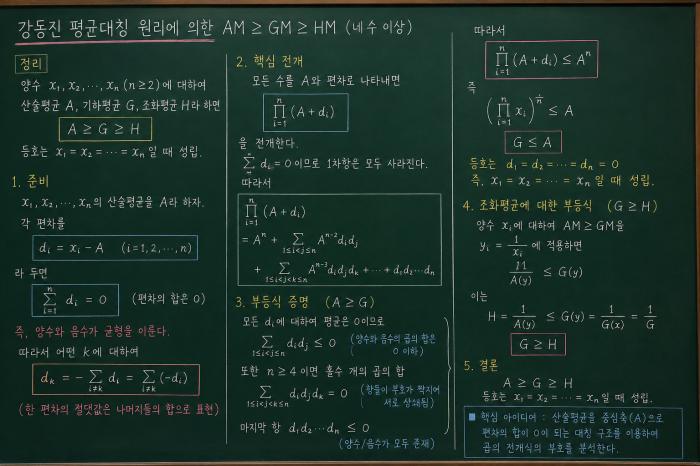 강동진 평균대칭 원리에 의한 AM ≥ GM ≥ HM (네 수 이상)
정리
양수 x₁, x₂, ⋯, xₙ (n≥2)에 대하여
산술평균 A, 기하평균 G, 조화평균 H라 하면
A ≥ G ≥ H
등호는 x₁ = x₂ = ⋯ = xₙ 일 때 성립.
1. 준비
x₁, x₂, ⋯, xₙ의 산술평균을 A라 하자.
각 편차를
dᵢ = xᵢ − A (i=1, 2, ⋯, n)
라 두면
∑_{i=1}^{n} dᵢ = 0 (편차의 합은 0)
즉, 양수와 음수가 균형을 이룬다.
따라서 어떤 k에 대하여
dₖ = − ∑_{i≠k} dᵢ = ∑_{i≠k} (−dᵢ)
(한 편차의 절댓값은 나머지들의 합으로 표현)
2. 핵심 전개
모든 수를 A와 편차로 나타내면
∏_{i=1}^{n} (A + dᵢ)
을 전개한다.
∑ dᵢ = 0 이므로 1차항은 모두 사라진다.
따라서
∏_{i=1}^{n} (A + dᵢ)
= Aⁿ + ∑_{1≤i<j≤n} Aⁿ⁻² dᵢdⱼ
+ ∑_{1≤i<j<k≤n} Aⁿ⁻³ dᵢdⱼdₖ + ⋯ + d₁d₂⋯dₙ
3. 부등식 증명 (A ≥ G)
모든 dᵢ에 대하여 평균은 0이므로
∑_{1≤i<j≤n} dᵢdⱼ ≤ 0 (양수와 음수의 곱의 합은
0 이하)
또한 n ≥ 4이면 홀수 개의 곱의 합
∑_{1≤i<j<k≤n} dᵢdⱼdₖ = 0 (항들이 부호가 짝지어
서로 상쇄됨)
마지막 항 d₁d₂⋯dₙ ≤ 0
(양수/음수가 모두 존재)
따라서
∏_{i=1}^{n} (A + dᵢ) ≤ Aⁿ
즉
(∏_{i=1}^{n} xᵢ)^{1/n} ≤ A
G ≤ A
등호는 d₁ = d₂ = ⋯ = dₙ = 0
즉, x₁ = x₂ = ⋯ = xₙ 일 때 성립.
4. 조화평균에 대한 부등식 (G ≥ H)
양수 xᵢ에 대하여 AM≥GM을
yᵢ = 1/xᵢ 에 적용하면
11/A(y) ≤ G(y)
이는
H = 1/A(y) ≤ G(y) = 1/G(x) = 1/G
G ≥ H
5. 결론
A ≥ G ≥ H
등호는 x₁ = x₂ = ⋯ = xₙ 일 때 성립.
■ 핵심 아이디어 : 산술평균을 중심축(A)으로
편차의 합이 0이 되는 대칭 구조를 이용하여
곱의 전개식의 부호를 분석한다.